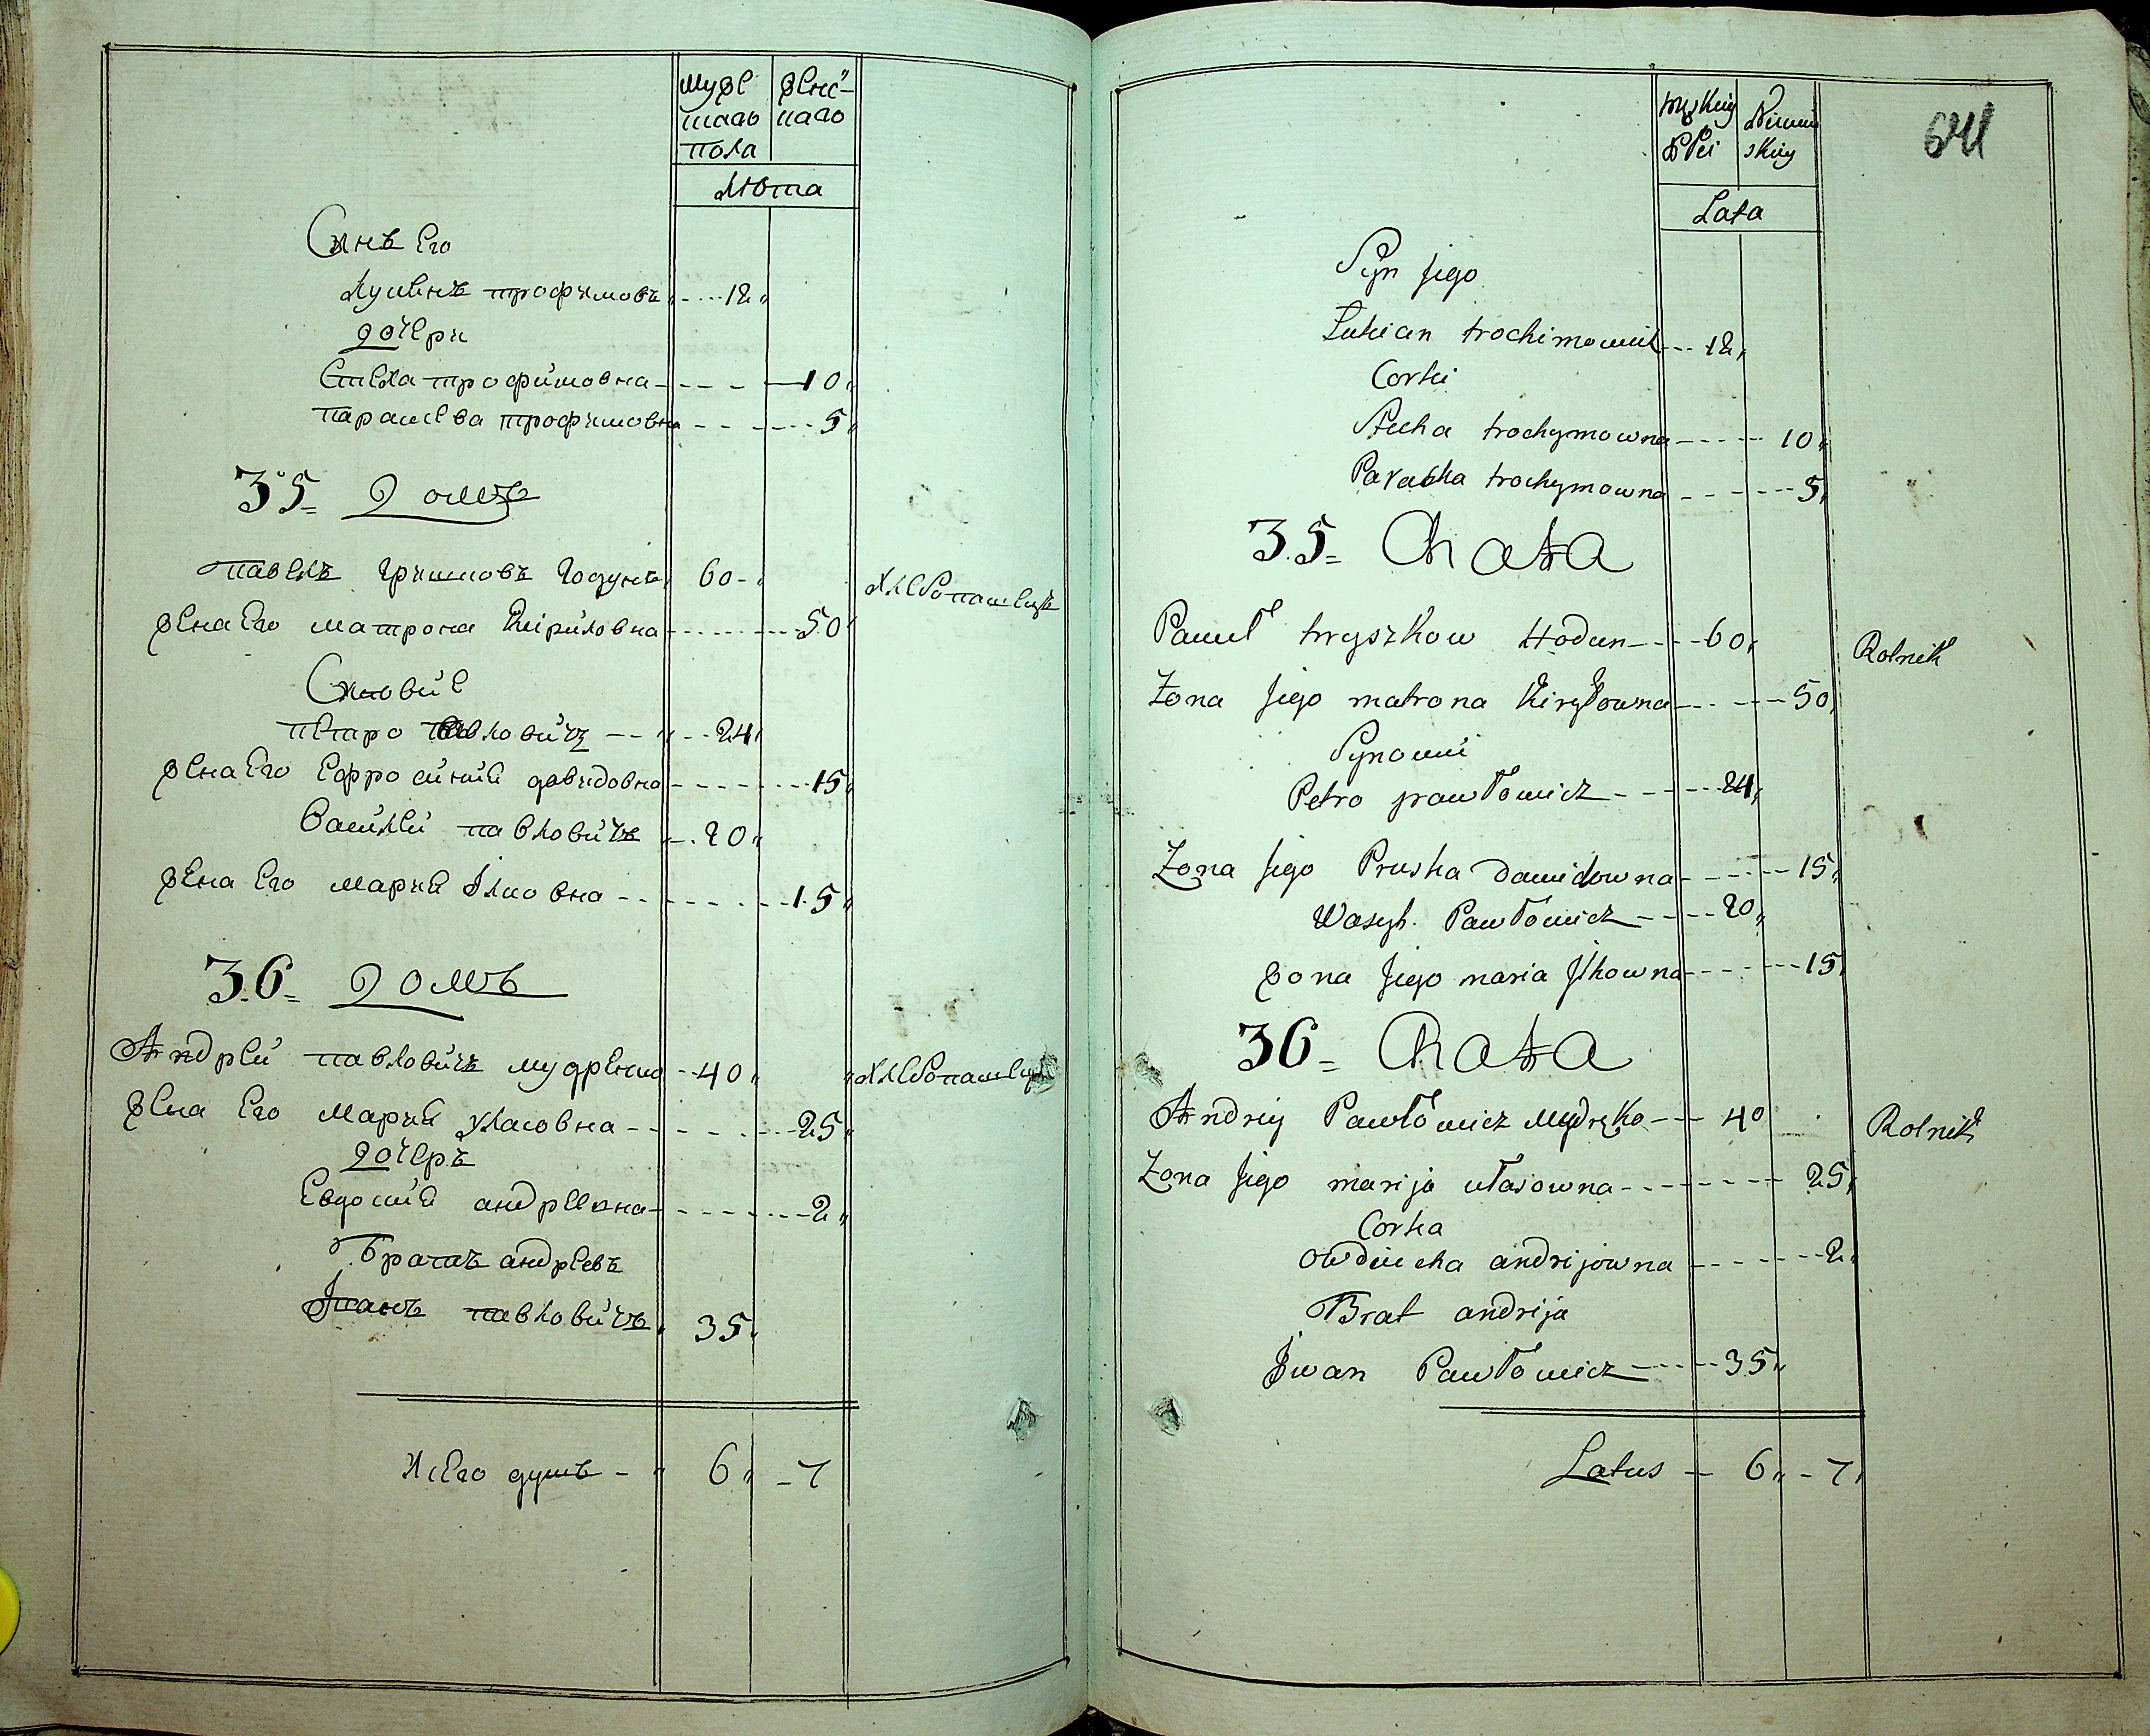 муже женс-
шаго каго
пола
Лѣта
Сынъ Его
Лукянъ трофимовъ 12
дочери
Стеха трофимовна 10
параскева трофимовна 5
35 Домъ
павелъ Гришковъ Годунъ 60 хлебопашецъ
жена Его матрона Кириловна 50
Сыновьѣ
петро павловичъ 24
жена Его Ефросиния давидовна 15
Василий павловичъ 20
жена Его Мария Ілковна 15
36 Домъ
Андрей павловичъ мудренко 40 хлебопашецъ
жена Его Мария Уласовна 25
дочеръ
Евдосия андреевна 2
Братъ андреевъ
Іванъ павловичъ 35
Всего душъ 6 7
męskiey Niewie
Płci skiey
64
Lata
Syn jego
Lukian trochimowicz 12
Corki
Stecha trochymowna 10
Paraska trochymowna 5
35 Chata
Paweł hryszkow Hodun 60 Rolnik
Zona jego matrona Kiryłowna 50
Synowie
Petro pawłowicz 24
Zona jego Pruska Dawidowna 15
Wasyl. Pawłowicz 20
żona jego maria Jlkowna 15
36 Chata
Andriy Pawłowicz Mudręko 40 Rolnik
Zona jego marija ułasowna 25
Corka
owdiucha andrijowna 2
Brat andrija
Jwan Pawłowicz 35
Latus 6 7